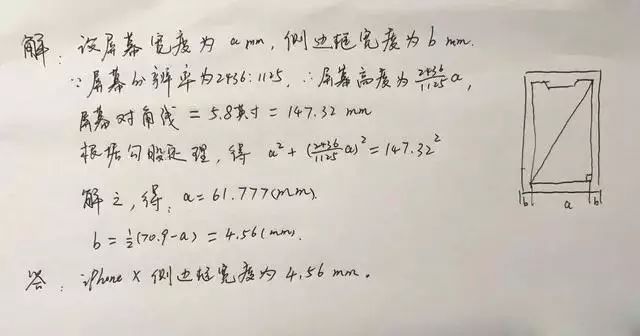 解：设屏幕宽度为 a mm，侧边框宽度为 b mm.
∵屏幕分辨率为2436:1125，∴屏幕高度为 2436/1125 a，
屏幕对角线 = 5.8英寸 = 147.32 mm
根据勾股定理，得 a² + (2436/1125 a)² = 147.32²
解之，得：a = 61.777(mm).
b = ½(70.9-a) = 4.56(mm).
答：iPhone X 侧边框宽度为 4.56 mm。
b a b